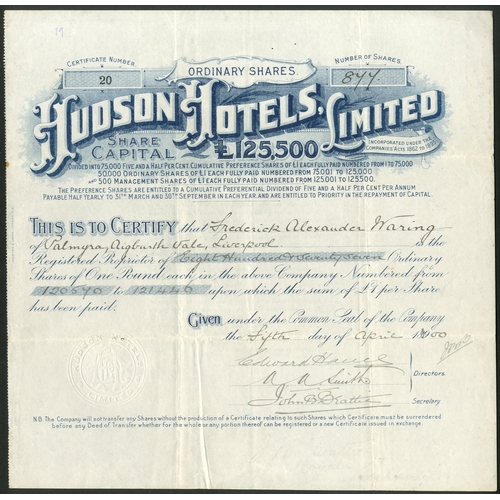 19
CERTIFICATE NUMBER.
20
ORDINARY SHARES.
NUMBER OF SHARES.
877.
HUDSON HOTELS, LIMITED
SHARE CAPITAL £125,500
INCORPORATED UNDER THE COMPANIES' ACTS 1862 TO
DIVIDED INTO 75,000 FIVE AND A HALF PER CENT. CUMULATIVE PREFERENCE SHARES OF £1 EACH FULLY PAID NUMBERED FROM 1 TO 75,000
50,000 ORDINARY SHARES OF £1 EACH FULLY PAID NUMBERED FROM 75,001 TO 125,000
AND 500 MANAGEMENT SHARES OF £1 EACH FULLY PAID NUMBERED FROM 125,001 TO 125,500.
THE PREFERENCE SHARES ARE ENTITLED TO A CUMULATIVE PREFERENTIAL DIVIDEND OF FIVE AND A HALF PER CENT PER ANNUM
PAYABLE HALF YEARLY TO 31ST MARCH AND 30TH SEPTEMBER IN EACH YEAR, AND ARE ENTITLED TO PRIORITY IN THE REPAYMENT OF CAPITAL.
THIS IS TO CERTIFY that Frederick Alexander Waring
of Palmyra, Aigburth Vale, Liverpool. is the
Registered Proprietor of Eight Hundred & Seventy Seven Ordinary
Shares of One Pound each in the above Company Numbered from
120570 to 121446 upon which the sum of £1 per Share
has been paid.
Given under the Common Seal of the Company
the day of April 1900
Edward
A A Smith
Directors.
John B
Secretary
N.B. The Company will not transfer any Shares without the production of a Certificate relating to such Shares which Certificate must be surrendered
before any Deed of Transfer whether for the whole or any portion thereof can be registered or a new Certificate issued in exchange.